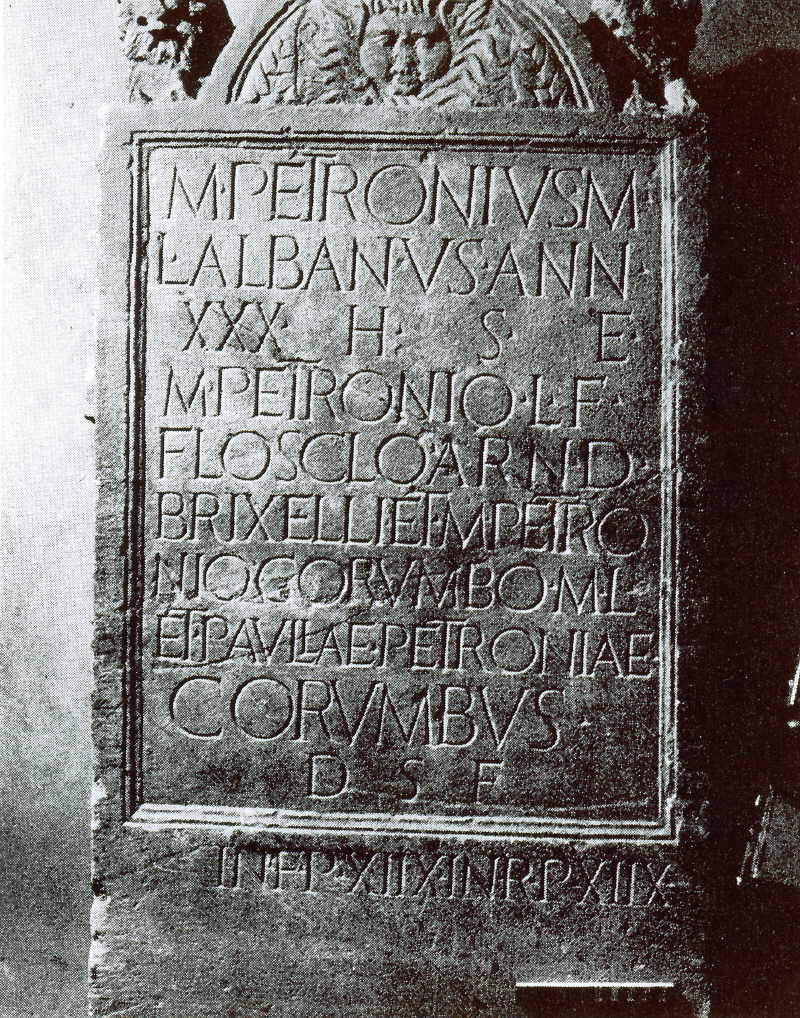 M·PÉTRONIVS·M
L·ALBANVS·ANN·
XXX· H· S· E·
M·PETRONIO·L·F·
FLOSCLO·ARN·D·
BRIXELLI·ÉT·M·PÉTRO
NIO·CORVMBO·M·L
ÉT·PAVILAE·PETRONIAE·
CORVMBVS·
D S F
IN·F·P·XIIX·IN·R·P·XIIX